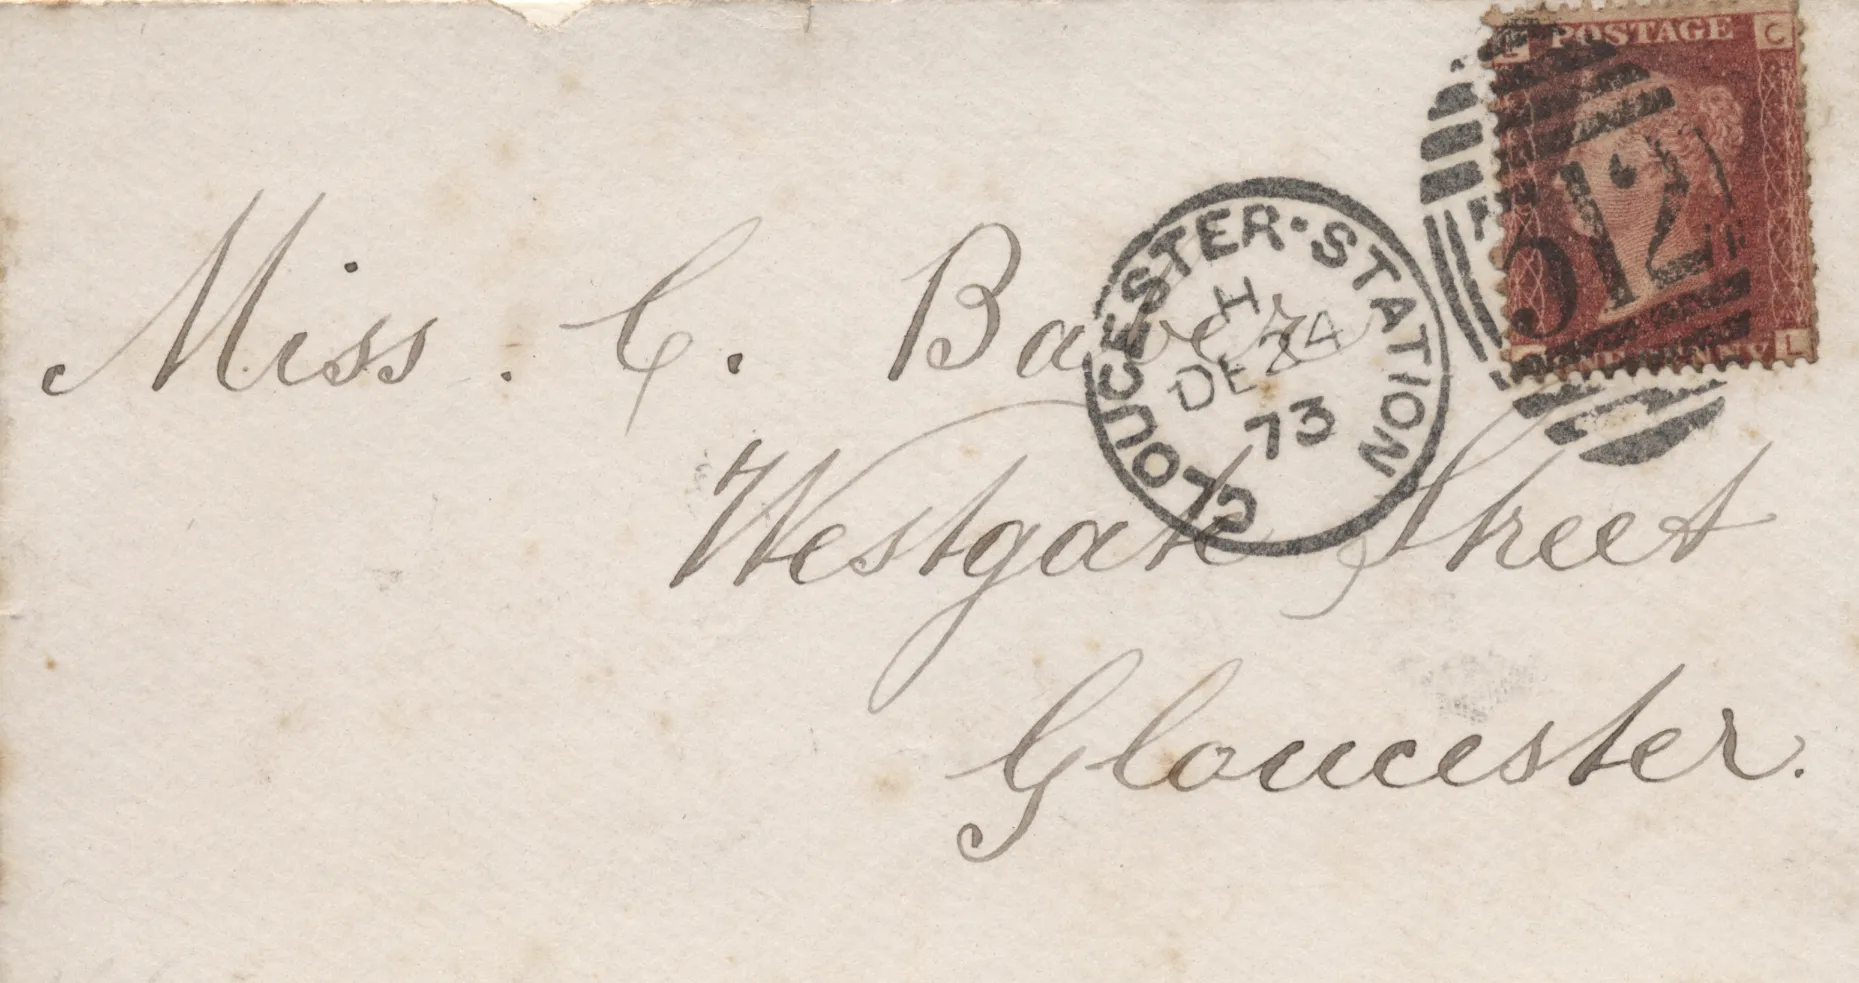 POSTAGE
C
312
ONE PENNY
L
GLOUCESTER·STATION
H
DE 24
73
Miss. C.
Westgate Street
Gloucester.